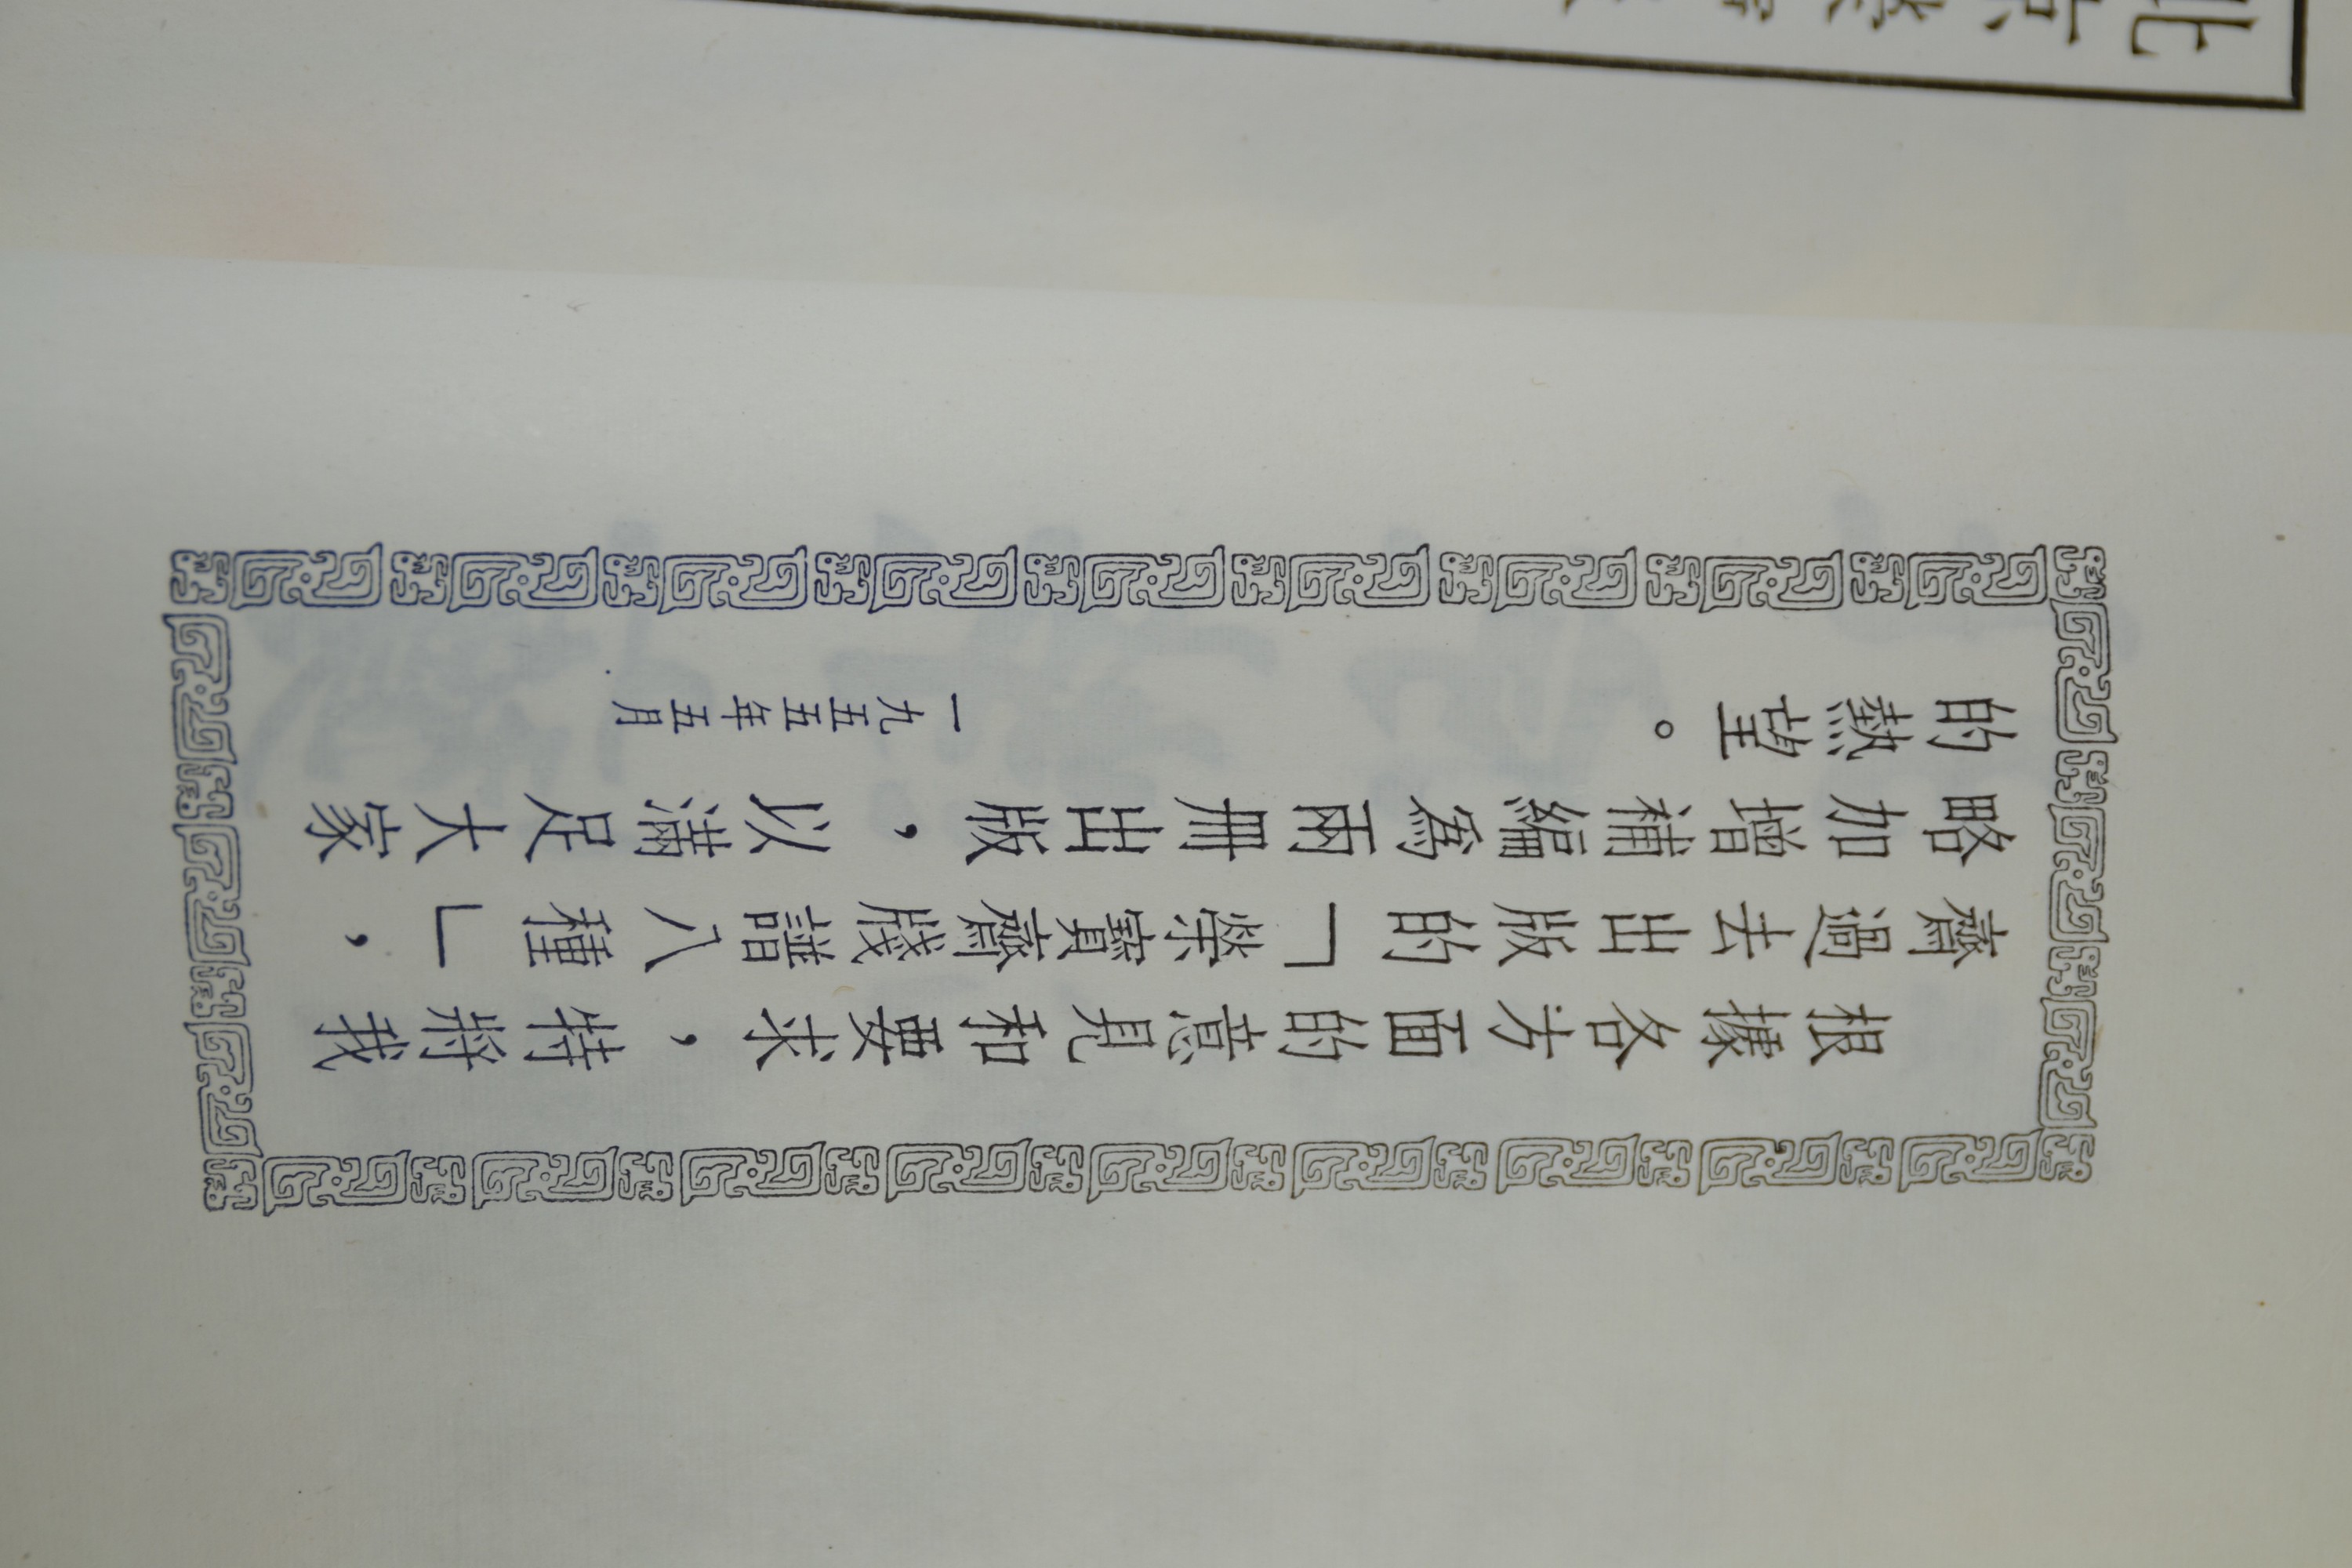 根據各方面的意見和要求，特將我
齋過去出版的「榮寶齋牋譜八種」，
略加增補編為兩冊出版，以滿足大家
的熱望。
一九五五年五月
北京